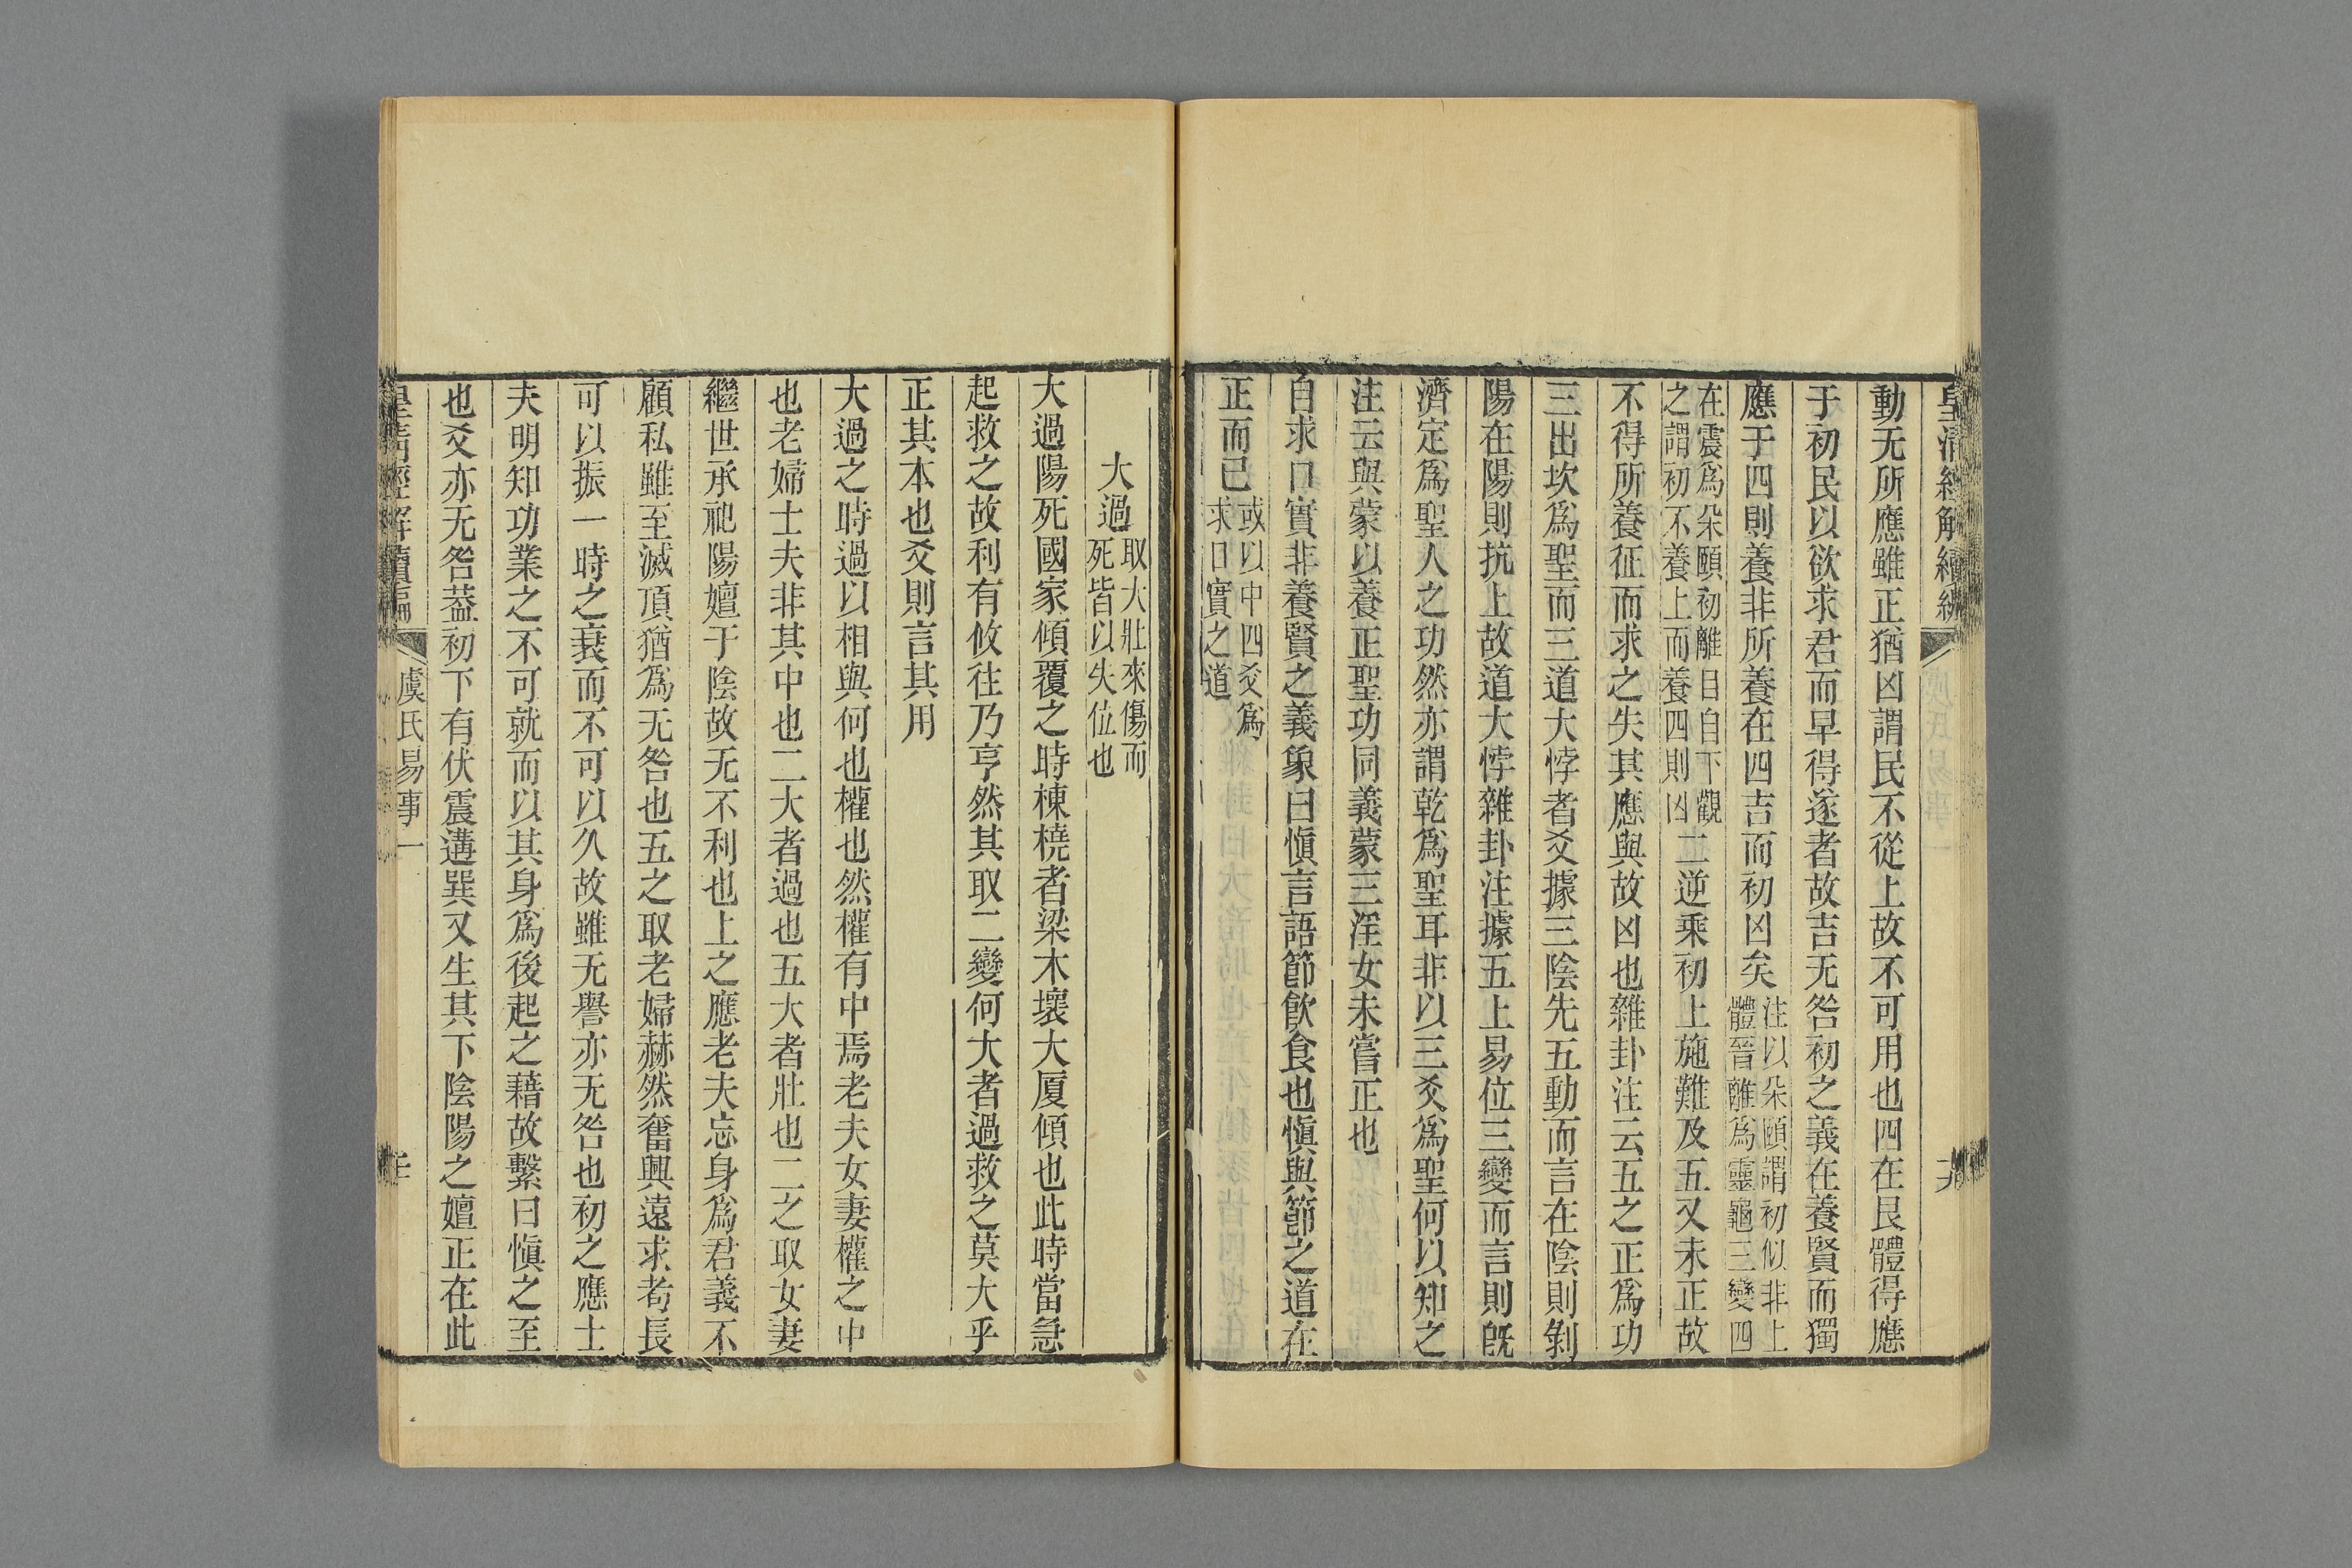 皇清經解續編
十九
動无所應雖正猶凶謂民不從上故不可用也四在艮體得應
于初民以欲求君而早得遂者故吉无咎初之義在養賢而獨
應于四則養非所養在四吉而初凶矣注以朵頤謂初似非上體晉離爲靈龜三變四
在震爲朵頤初離目自下觀之謂初不養上而養四則凶二逆乘初上施難及五又未正故
不得所養征而求之失其應與故凶也雜卦注云五之正爲功
三出坎爲聖而三道大悖者爻據三陰先五動而言在陰則剝
陽在陽則抗上故道大悖雜卦注據五上易位三變而言則旣
濟定爲聖人之功然亦謂乾爲聖耳非以三爻爲聖何以知之
注云與蒙以養正聖功同義蒙三淫女未嘗正也
自求口實非養賢之義象曰愼言語節飮食也愼與節之道在
正而已或以中四爻爲求口實之道
大過取大壯來傷而死皆以失位也
大過陽死國家傾覆之時棟橈者梁木壞大厦傾也此時當急
起救之故利有攸往乃亨然其取二變何大者過救之莫大乎
正其本也爻則言其用
大過之時過以相與何也權也然權有中焉老夫女妻權之中
也老婦士夫非其中也二大者過也五大者壯也二之取女妻
繼世承祀陽嬗于陰故无不利也上之應老夫忘身爲君義不
顧私雖至滅頂猶爲无咎也五之取老婦赫然奮興遠求耇長
可以振一時之衰而不可以久故雖无譽亦无咎也初之應士
夫明知功業之不可就而以其身爲後起之藉故繫曰愼之至
也爻亦无咎葢初下有伏震遘巽又生其下陰陽之嬗正在此
皇清經解續編
虞氏易事一